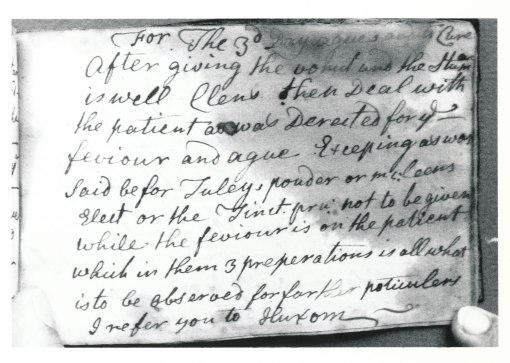 For The 3d Day agues and a Cure
After giving the vomit and the Stum
is well Clens then Deal with
the patient as was Derected for ye
feviour and ague Exceping as wos
Said befor Tuleys pouder or mcleens
Elect or the Tinct. pru: not to be given
while the feviour is on the patient
which in them 3 preperations is all what
is to be observed for farther peticulers
I refer you to Huxom